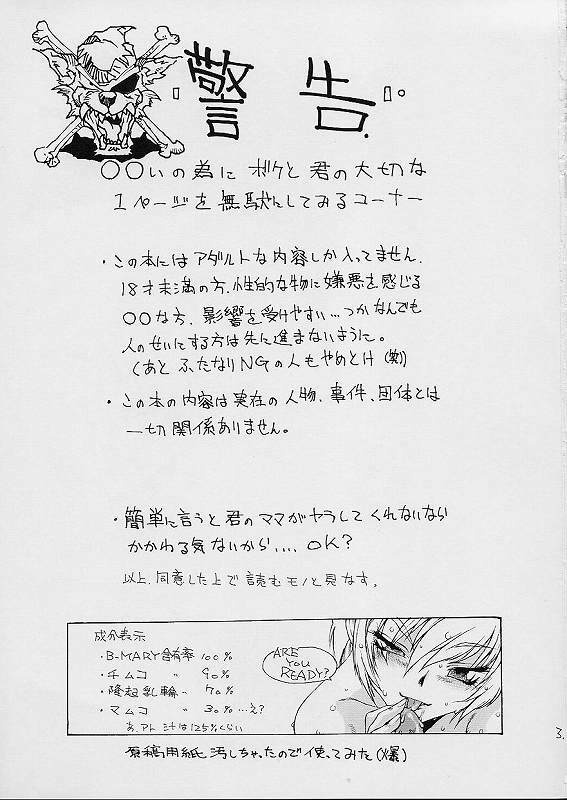 警告。
○○いの為にボケと君の大切な
1ページを無駄にしてみるコーナー
・この本にはアダルトな内容しか入ってません。
18才未満の方、性的な物に嫌悪を感じる
○○な方、影響を受けやすい…つかなんでも
人のせいにする方は先に進まないように。
(あとふたなりNGの人もやめとけ(笑))
・この本の内容は実在の人物、事件、団体とは
一切関係ありません。
・簡単に言うと君のママがヤラしてくれないなら
かかわる気ないから....OK?
以上、同意した上で読むモノと見なす。
成分表示
・B-MARY含有率 100%
・チムコ 〃 90%
・隆起乳輪 〃 70%
・マムコ 〃 30%…え?
あ、アト 汁は125%くらい
ARE
YOU
READY?
原稿用紙汚しちゃったので使ってみた(爆)
3.